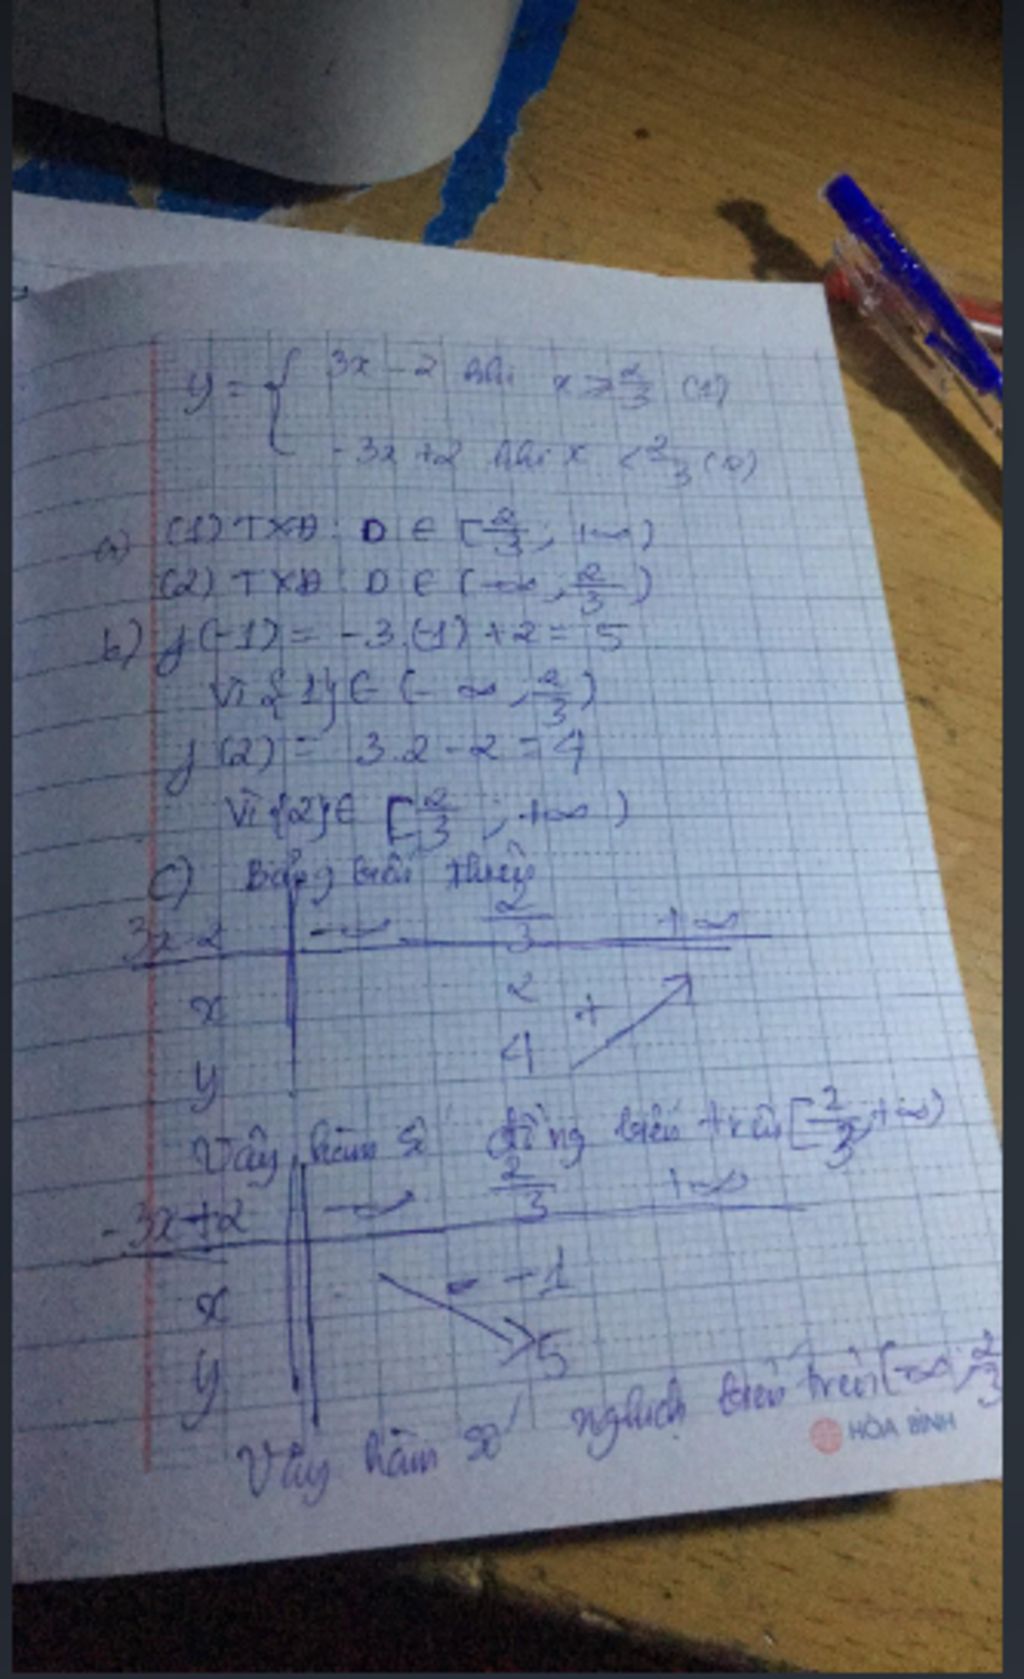 y = { 3x - 2 khi x ≥ 2/3 (1)
-3x + 2 khi x < 2/3 (2)
a) (1) TXĐ: D ∈ [2/3; +∞)
(2) TXĐ: D ∈ (-∞, 2/3)
b) f(-1) = -3.(-1) + 2 = 5
Vì {1} ∈ (-∞, 2/3)
f(2) = 3.2 - 2 = 4
Vì {2} ∈ [2/3; +∞)
c) Bảng biến thiên
3x-2 -∞ 2/3 +∞
x 2 +
y 4
Vậy hàm số đồng biến trên [2/3, +∞)
-3x+2 -∞ 2/3 +∞
x - -1
y 5
Vậy hàm số nghịch biến trên (-∞, 2/3
HÒA BÌNH